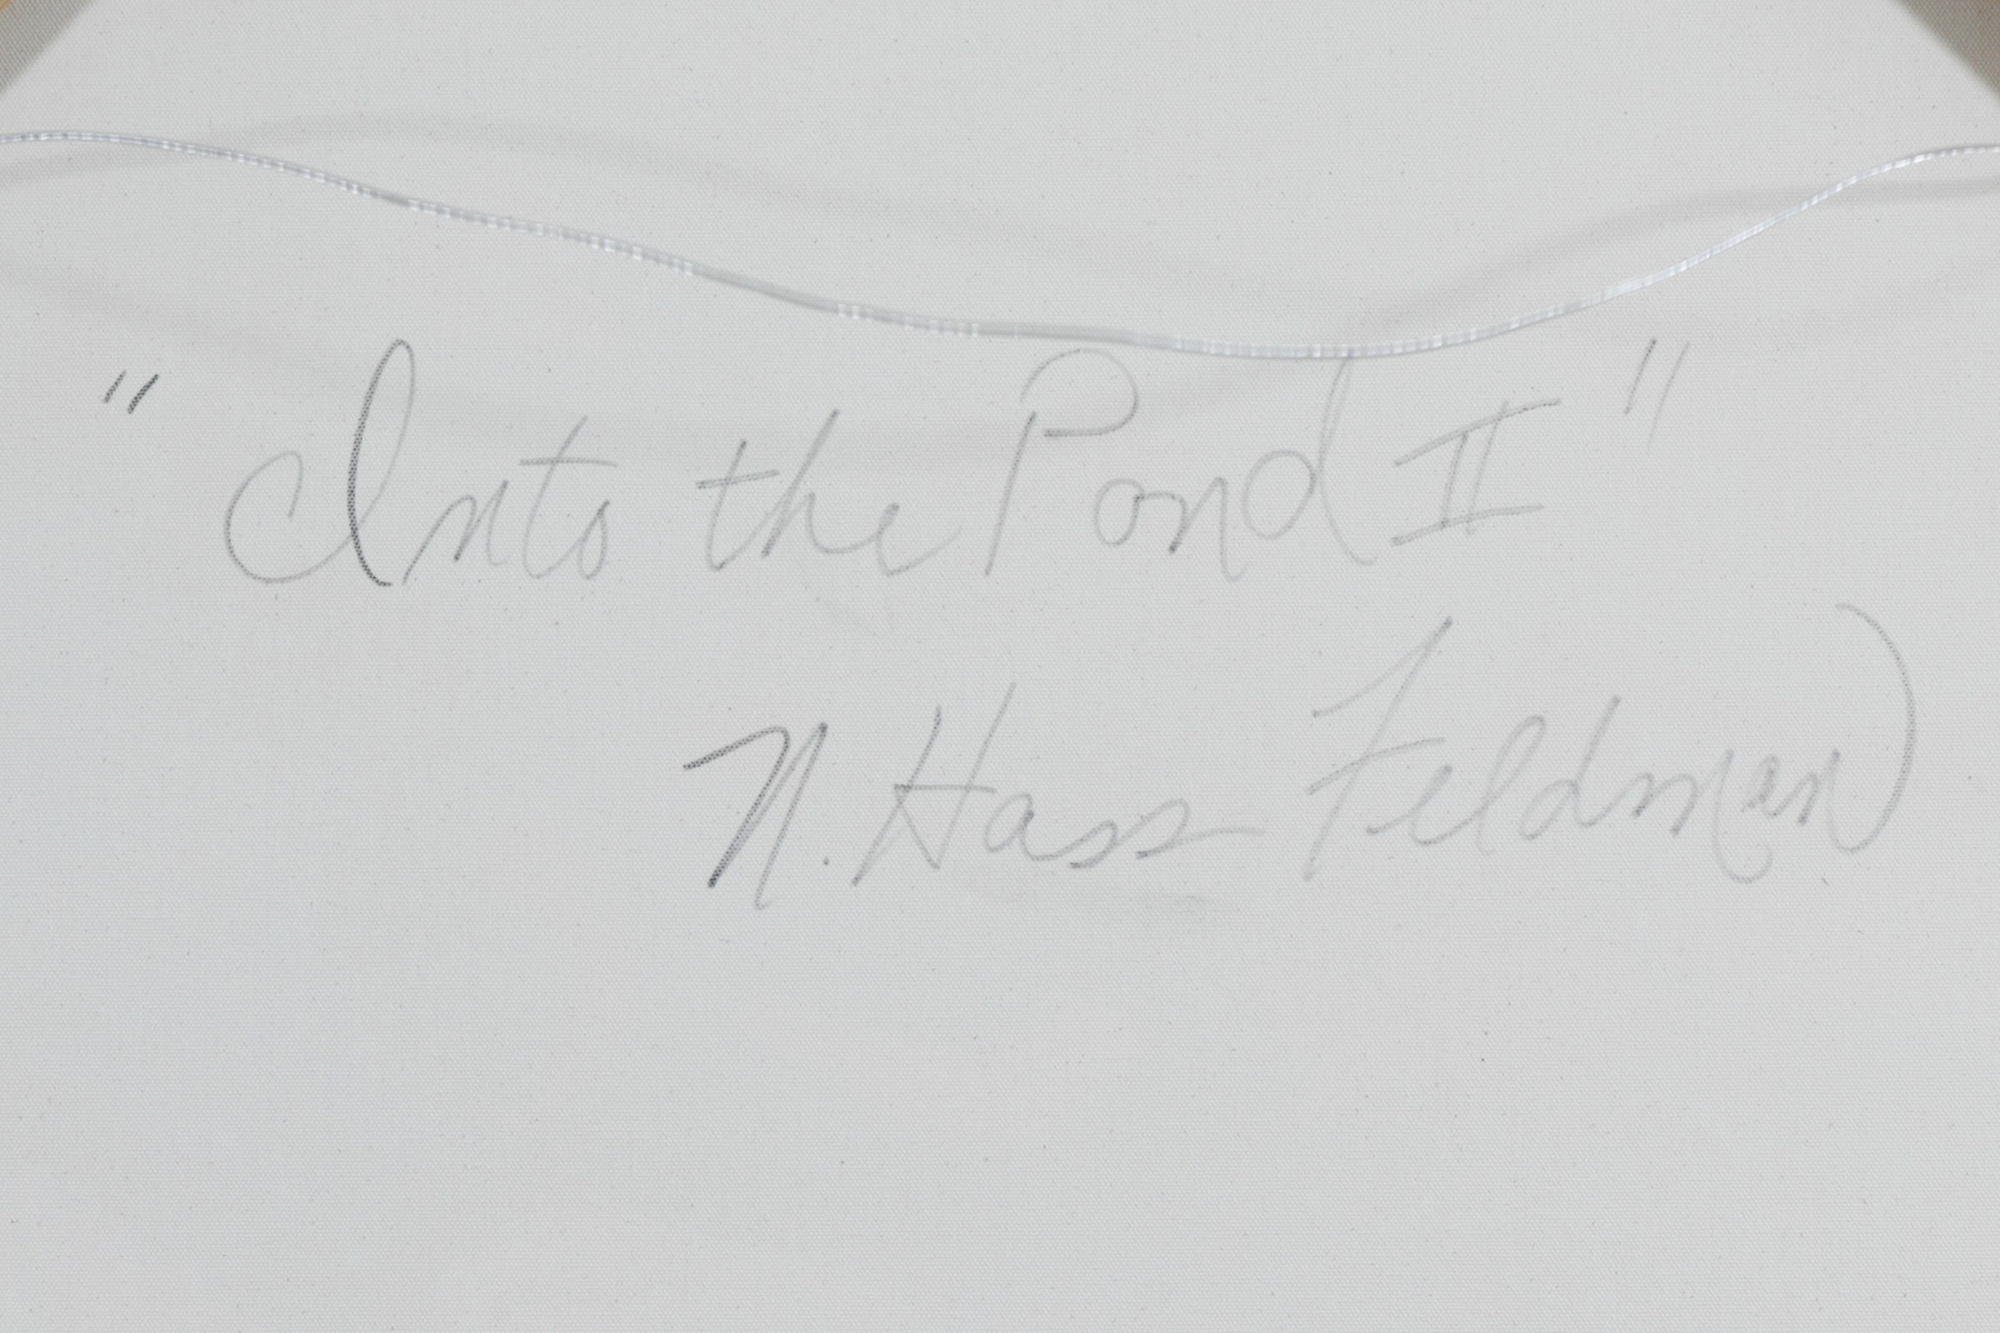 "Into the Pond II"
N. Hass Feldman